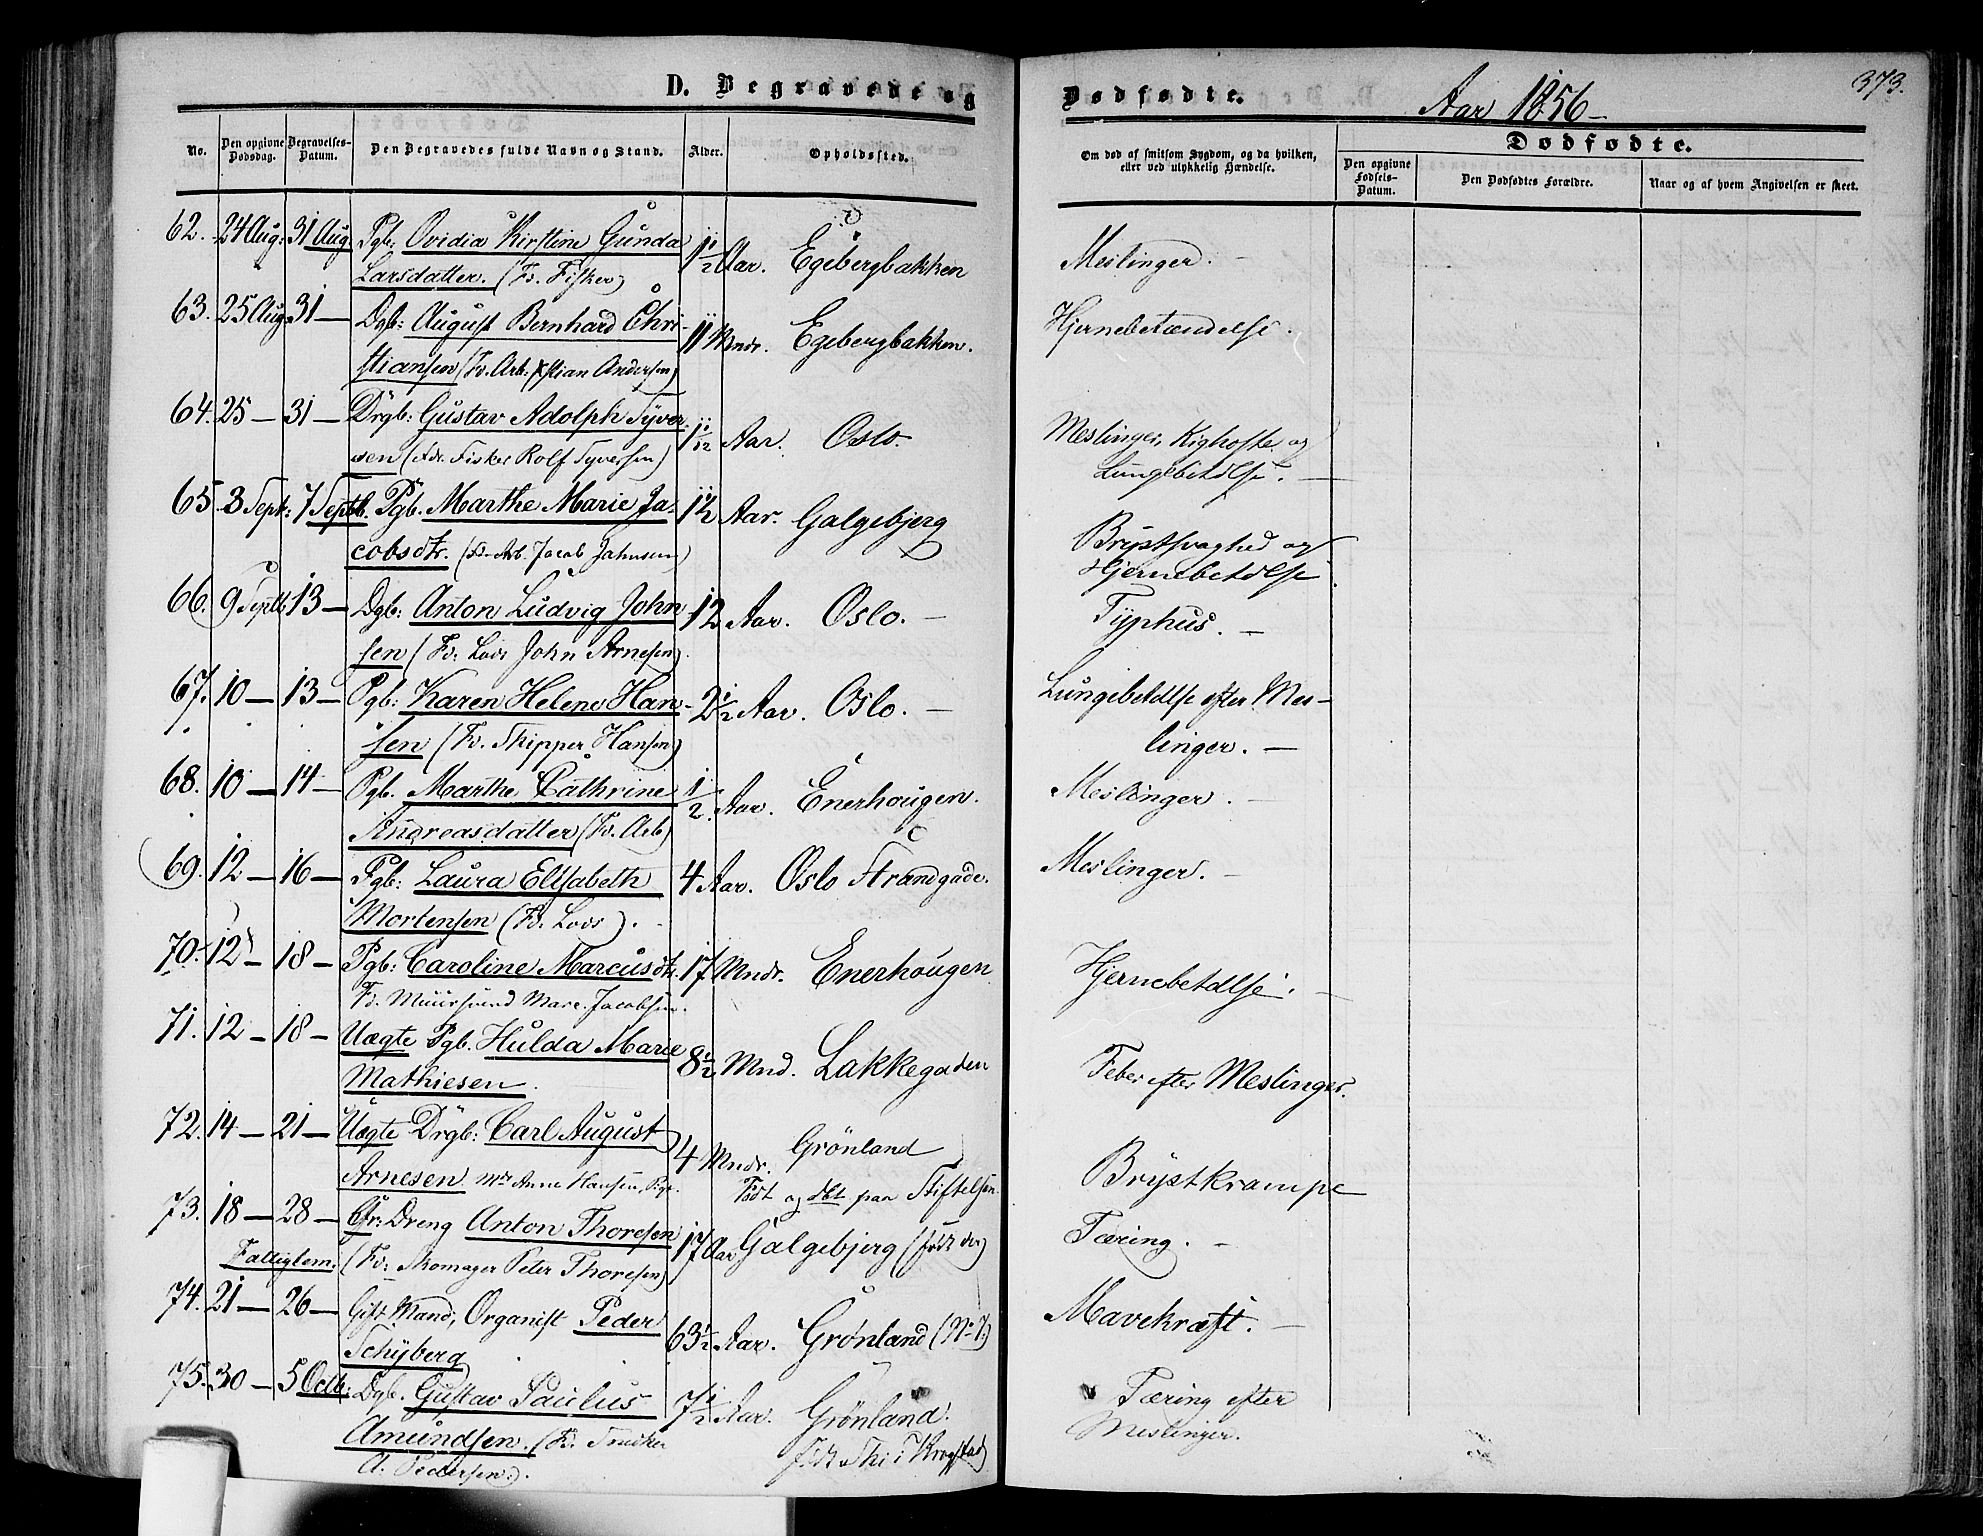 D. Begravede og
Dødfødte.
Aar 1856
373.
No. Den opgivne Dødsdag. Begravelses-Datum. Den Begravedes fulde Navn og Stand. Alder. Opholdssted.
Om død af smitsom Sygdom, og da hvilken, eller ved ulykkelig Hændelse.
Dødfødte.
Den opgivne Fødsels-Datum. Den Dødfødtes Forældre. Naar og af hvem Angivelsen er skeet.
62. 24 Aug: 31 Aug Pgb: Ovidia Kirstine Gunda 1 1/2 Aar. Egebergbakken Meslinger. —
Larsdatter. (Fd. Fisker)
63. 25 Aug 31 — Dgb: August Bernhard Chri- 11 Mndr. Egebergbakken. Hjernebetændelse.
stiansen (Fd. Arb: Xstian Andersen)
64. 25 — 31 — Drgb: Gustav Adolph Syver- 1 1/12 Aar. Oslo. Meslinger, Kighoste og
sen (Fdr. Fisker Rolf Syversen) Lungebetdlse. —
65. 3 Sept: 7 Septb. Pgb. Marthe Marie Ja- 1 1/2 Aar. Galgebjerg Brystsvaghed og
cobsdtr. (Fd. Arb. Jacob Jahnsen) Hjernebetdlse.
66. 9 Septb 13 — Dgb: Anton Ludvig John- 12 Aar. Oslo. — Typhus. —
sen (Fd: Lods John Arnesen)
67. 10 — 13 — Pgb: Karen Helene Han- 2 1/2 Aar. Oslo. — Lungebetdlse efter Mes-
sen (Fd. Skipper Hansen) linger. —
68. 10 — 14 — Pgb. Marthe Cathrine 1/2 Aar. Enerhougen. Meslinger. —
Andreasdatter (Fd. Arb)
69. 12 — 16 — Pgb: Laura Elisabeth 4 Aar. Oslo Strandgade. Meslinger. —
Mortensen (Fd. Lods).
70. 12 — 18 — Pgb: Caroline Marcusdtr. 17 Mndr. Enerhougen Hjernebetdlse. —
Fd. Muursvend Marc. Jacobsen.
71. 12 — 18 — Uægte Pgb. Hulda Marie 8 1/2 Mnd. Lakkegaden Feber efter Meslinger.
Mathiesen.
72. 14 — 21 — Uægte Drgb: Carl August 4 Mndr. Grönland Brystkrampe
Arnesen Mdr Anne Hansen, Pige. Födt og dbt paa Stiftelsen.
73. 18 — 28 — Gr: Dreng Anton Thoresen 17 Aar Galgebjerg (födt der) Tæring. —
Fattiglem. (Fd: Skomager Peter Thoresen)
74. 21 — 26 — Gift Mand, Organist Peder 63 1/2 Aar. Grønland (No 7.) Mavekræft. —
Schyberg
75. 30 — 5 Octb: Dgb. Gustav Paulus 7 1/2 Aar. Grønland. Tæring efter
Amundsen. (Fd. Snedker födt i Ski i Krogstad Meslinger.
A. Pedersen.)